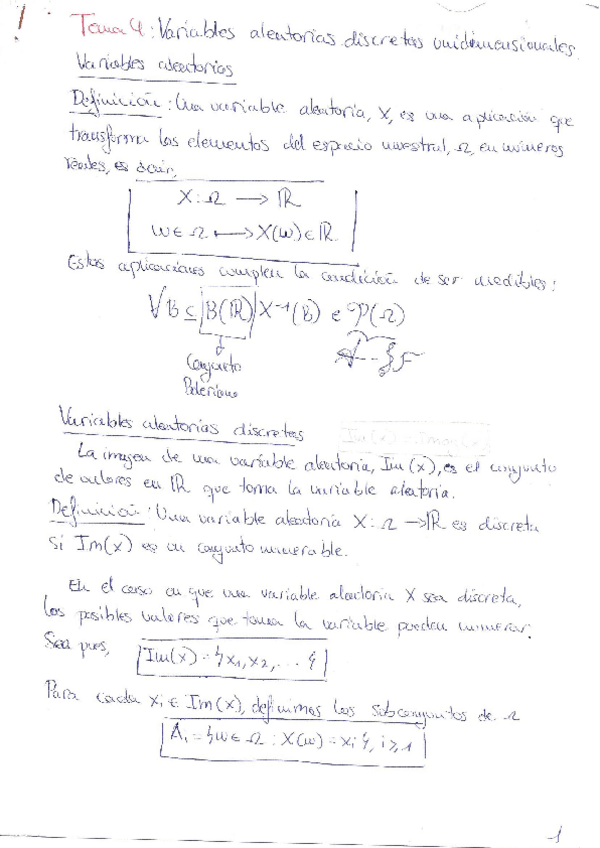 Tema 4: Variables aleatorias discretas unidimensionales.
Variables aleatorias
Definición: Una variable aleatoria, X, es una aplicación que
transforma los elementos del espacio muestral, Ω, en números
reales, es decir,
X: Ω → ℝ
ω ∈ Ω ⟼ X(ω) ∈ ℝ
Estas aplicaciones cumplen la condición de ser medibles:
∀B ⊆ B(ℝ) X⁻¹(B) ∈ P(Ω)
Conjunto
Variables aleatorias discretas
La imagen de una variable aleatoria, Im(X), es el conjunto
de valores en ℝ que toma la variable aleatoria.
Definición: Una variable aleatoria X: Ω → ℝ es discreta
si Im(x) es un conjunto numerable.
En el caso en que una variable aleatoria X sea discreta,
los posibles valores que toma la variable pueden numerar.
Sea pues, Im(x) = {x₁, x₂, ... }
Para cada xᵢ ∈ Im(X), definimos los subconjuntos de Ω
Aᵢ = {ω ∈ Ω : X(ω) = xᵢ}, i ≥ 1
1